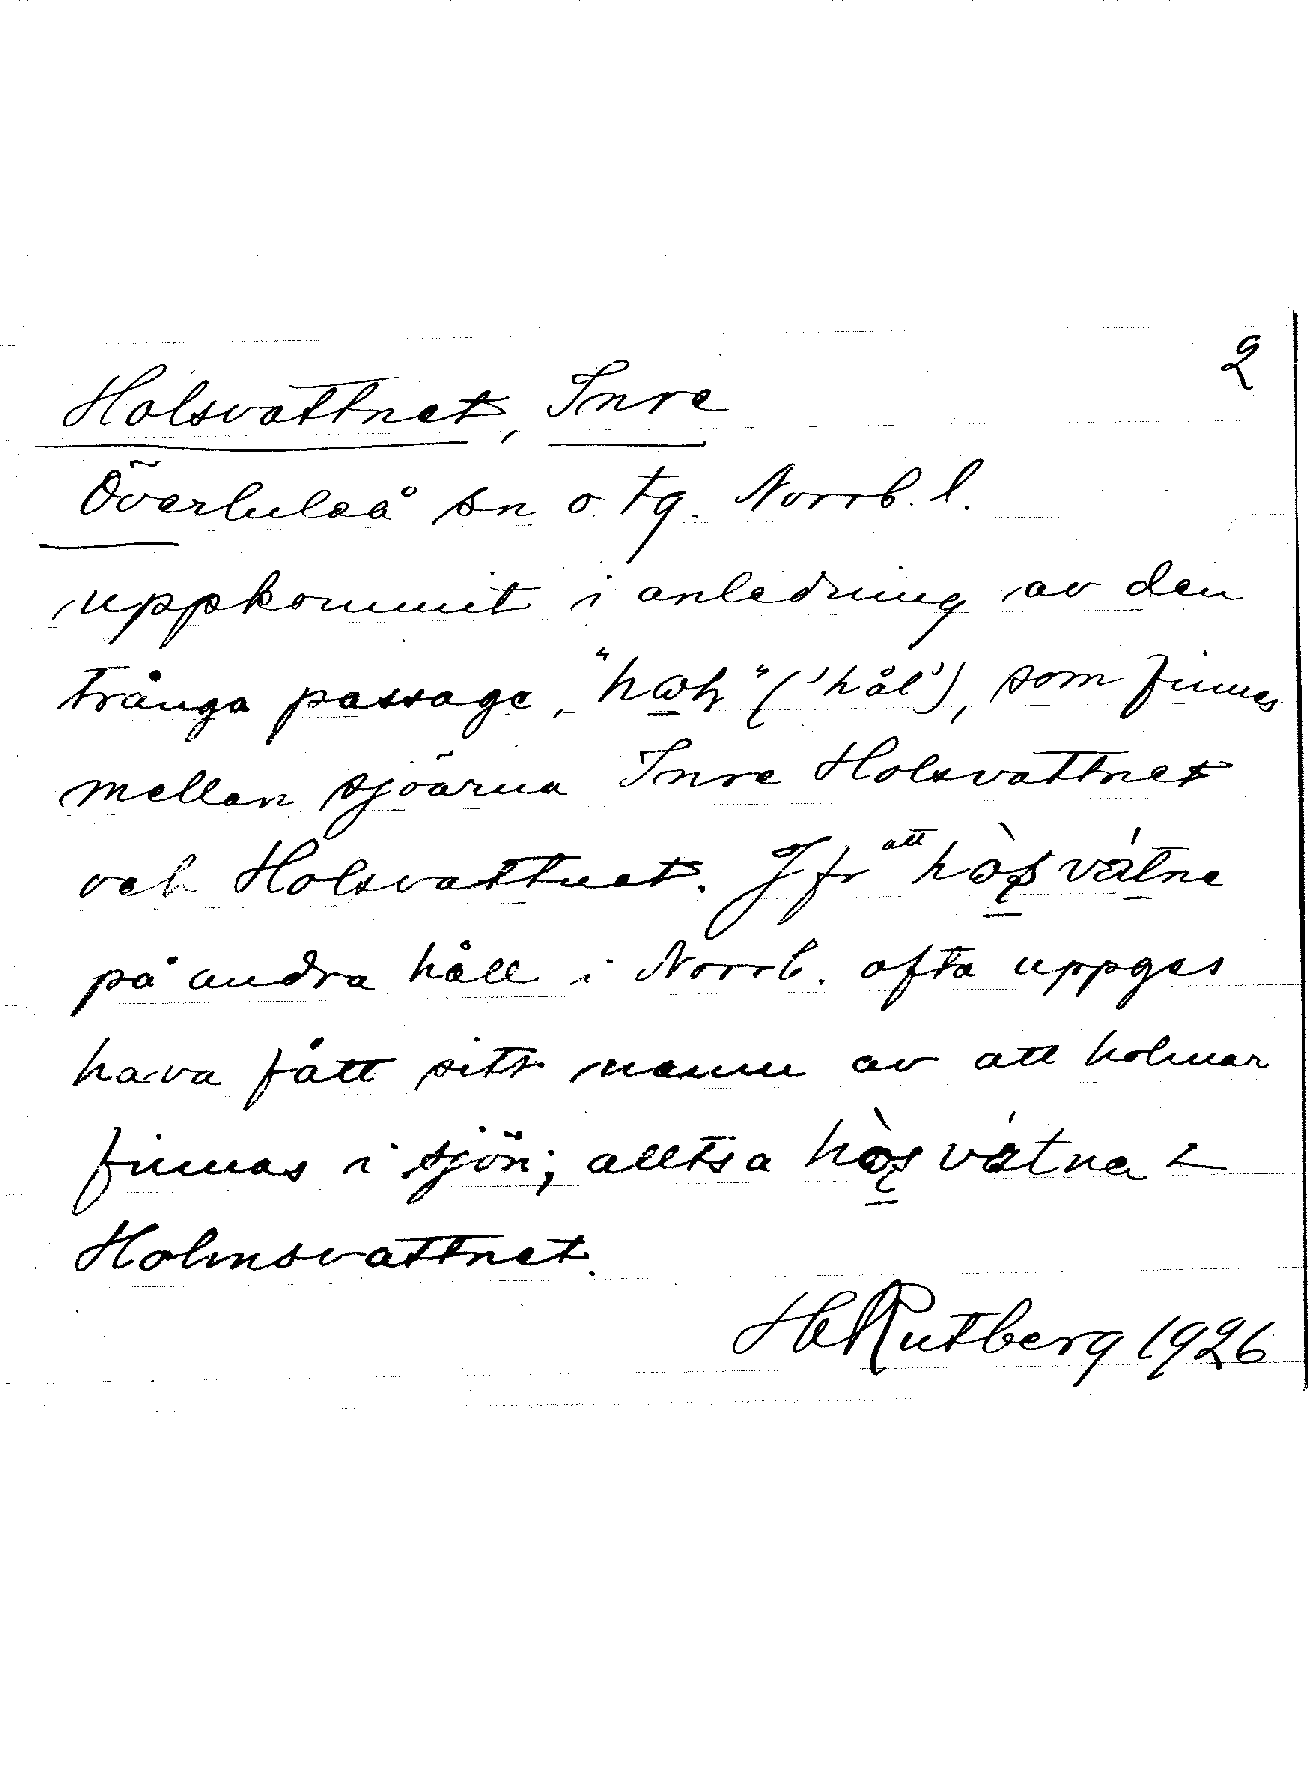 2
Holsvattnet, Inre
Överluleå sn o. tg. Norrb. l.
uppkommit i anledning av den
trånga passage, "hoḷ" ('hål'), som finnes
mellan sjöarna Inre Holsvattnet
och Holsvattnet. Jfr att
på andra håll i Norrb. ofta uppges
hava fått sitt namn av att holmar
finnas i sjön; alltså <
Holmsvattnet.
H Rutberg 1926